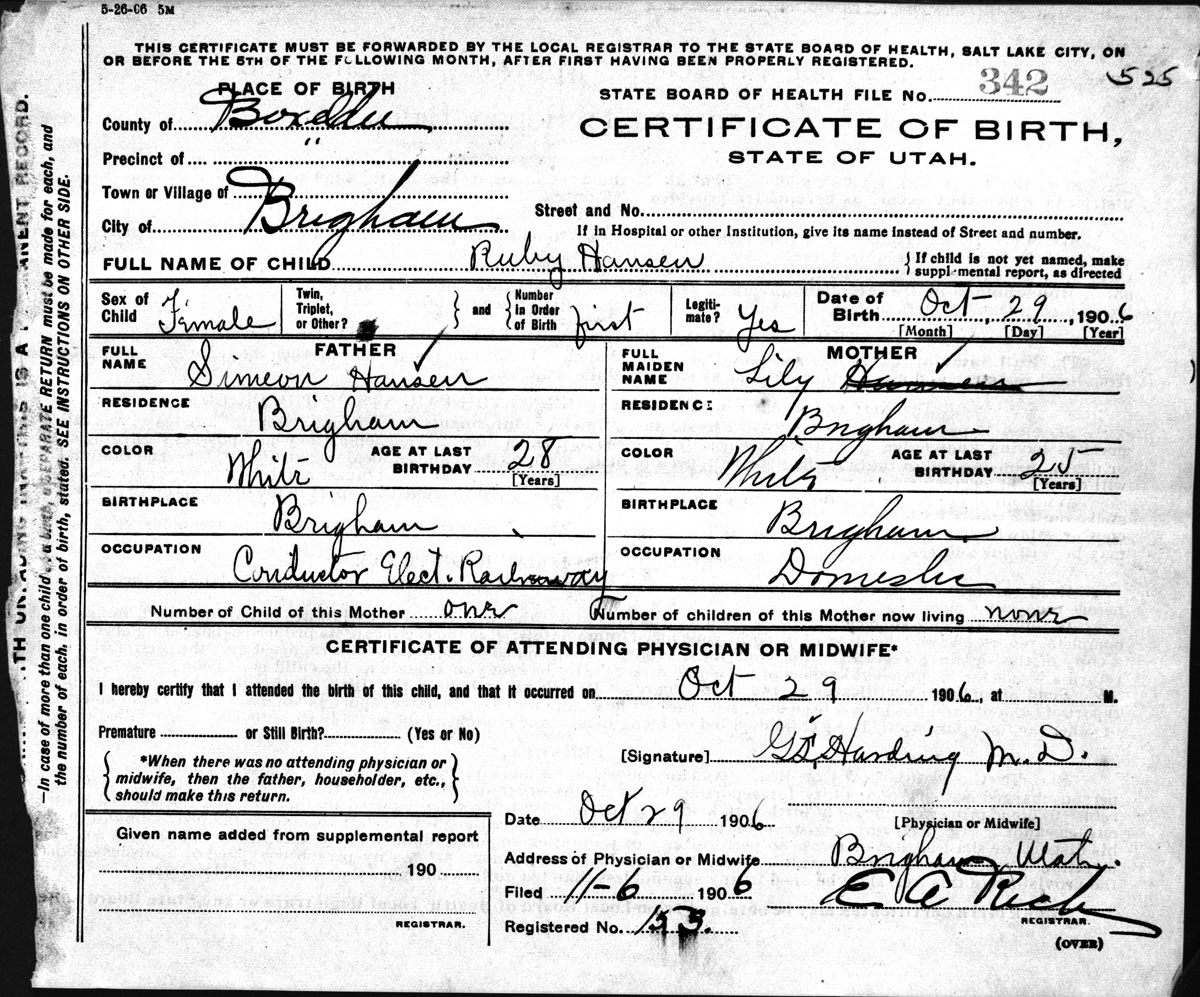 5-26-06 5M
THIS CERTIFICATE MUST BE FORWARDED BY THE LOCAL REGISTRAR TO THE STATE BOARD OF HEALTH, SALT LAKE CITY, ON
OR BEFORE THE 5TH OF THE FOLLOWING MONTH, AFTER FIRST HAVING BEEN PROPERLY REGISTERED.
PLACE OF BIRTH
STATE BOARD OF HEALTH FILE No. 342 525
County of Boxelder
CERTIFICATE OF BIRTH,
STATE OF UTAH.
Precinct of "
Town or Village of
City of Brigham
Street and No.
If in Hospital or other Institution, give its name instead of Street and number.
FULL NAME OF CHILD Ruby Hansen { If child is not yet named, make supplemental report, as directed
Sex of Child Female
Twin, Triplet, or Other? } and { Number in Order of Birth first
Legitimate? Yes
Date of Birth Oct, 29, 1906
[Month] [Day] [Year]
FATHER
FULL NAME Simeon Hansen
MOTHER
FULL MAIDEN NAME Lily
RESIDENCE Brigham
RESIDENCE Brigham
COLOR White AGE AT LAST BIRTHDAY 28 [Years]
COLOR White AGE AT LAST BIRTHDAY 25 [Years]
BIRTHPLACE Brigham
BIRTHPLACE Brigham
OCCUPATION Conductor Elect. Railway
OCCUPATION Domestic
Number of Child of this Mother one Number of children of this Mother now living none
CERTIFICATE OF ATTENDING PHYSICIAN OR MIDWIFE*
I hereby certify that I attended the birth of this child, and that it occurred on Oct 29 1906, at M.
Premature or Still Birth? (Yes or No)
[Signature] Harding M.D.
{ *When there was no attending physician or midwife, then the father, householder, etc., should make this return. }
Date Oct 29 1906
[Physician or Midwife]
Given name added from supplemental report
190
Address of Physician or Midwife Brigham Utah.
Filed 11-6 1906 E A Rich
REGISTRAR.
REGISTRAR.
Registered No. 153.
(OVER)
—In case of more than one child at a birth, a SEPARATE RETURN must be made for each, and
the number of each, in order of birth, stated. SEE INSTRUCTIONS ON OTHER SIDE.
THIS IS A PERMANENT RECORD.